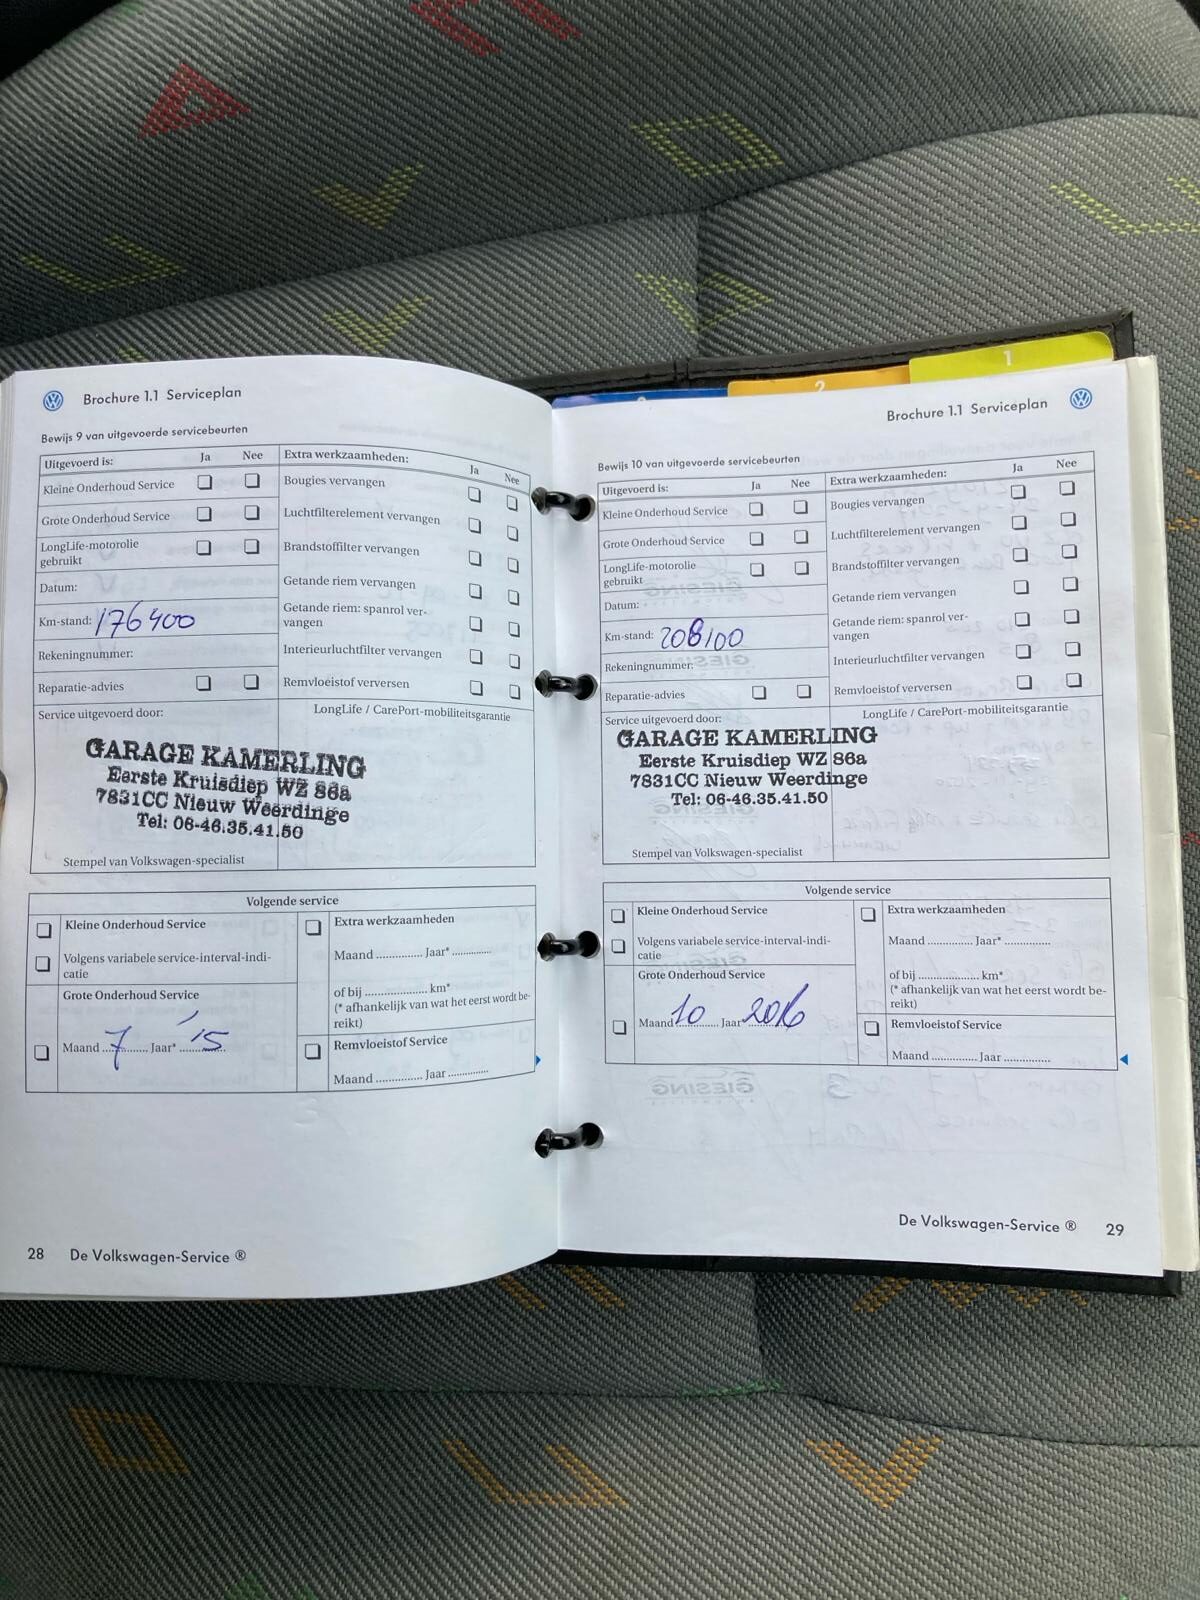 1
2
Brochure 1.1 Serviceplan
Bewijs 9 van uitgevoerde servicebeurten
Uitgevoerd is: Ja Nee
Kleine Onderhoud Service
Grote Onderhoud Service
LongLife-motorolie
gebruikt
Datum:
Km-stand: 176400
Rekeningnummer:
Reparatie-advies
Extra werkzaamheden: Ja Nee
Bougies vervangen
Luchtfilterelement vervangen
Brandstoffilter vervangen
Getande riem vervangen
Getande riem: spanrol ver-
vangen
Interieurluchtfilter vervangen
Remvloeistof verversen
Service uitgevoerd door:
LongLife / CarePort-mobiliteitsgarantie
GARAGE KAMERLING
Eerste Kruisdiep WZ 86a
7831CC Nieuw Weerdinge
Tel: 06-46.35.41.50
Stempel van Volkswagen-specialist
Volgende service
Kleine Onderhoud Service
Volgens variabele service-interval-indi-
catie
Grote Onderhoud Service
Maand 7 Jaar* '15
Extra werkzaamheden
Maand ............... Jaar* ..............
of bij .................... km*
(* afhankelijk van wat het eerst wordt be-
reikt)
Remvloeistof Service
Maand ............... Jaar ..............
28 De Volkswagen-Service ®
Brochure 1.1 Serviceplan
Bewijs 10 van uitgevoerde servicebeurten
Uitgevoerd is: Ja Nee
Kleine Onderhoud Service
Grote Onderhoud Service
LongLife-motorolie
gebruikt
Datum:
Km-stand: 208100
Rekeningnummer:
Reparatie-advies
Extra werkzaamheden: Ja Nee
Bougies vervangen
Luchtfilterelement vervangen
Brandstoffilter vervangen
Getande riem vervangen
Getande riem: spanrol ver-
vangen
Interieurluchtfilter vervangen
Remvloeistof verversen
Service uitgevoerd door:
LongLife / CarePort-mobiliteitsgarantie
GARAGE KAMERLING
Eerste Kruisdiep WZ 86a
7831CC Nieuw Weerdinge
Tel: 06-46.35.41.50
Stempel van Volkswagen-specialist
Volgende service
Kleine Onderhoud Service
Volgens variabele service-interval-indi-
catie
Grote Onderhoud Service
Maand 10 Jaar 2016
Extra werkzaamheden
Maand ............... Jaar* ...............
of bij .................... km*
(* afhankelijk van wat het eerst wordt be-
reikt)
Remvloeistof Service
Maand ............... Jaar ...............
De Volkswagen-Service ® 29